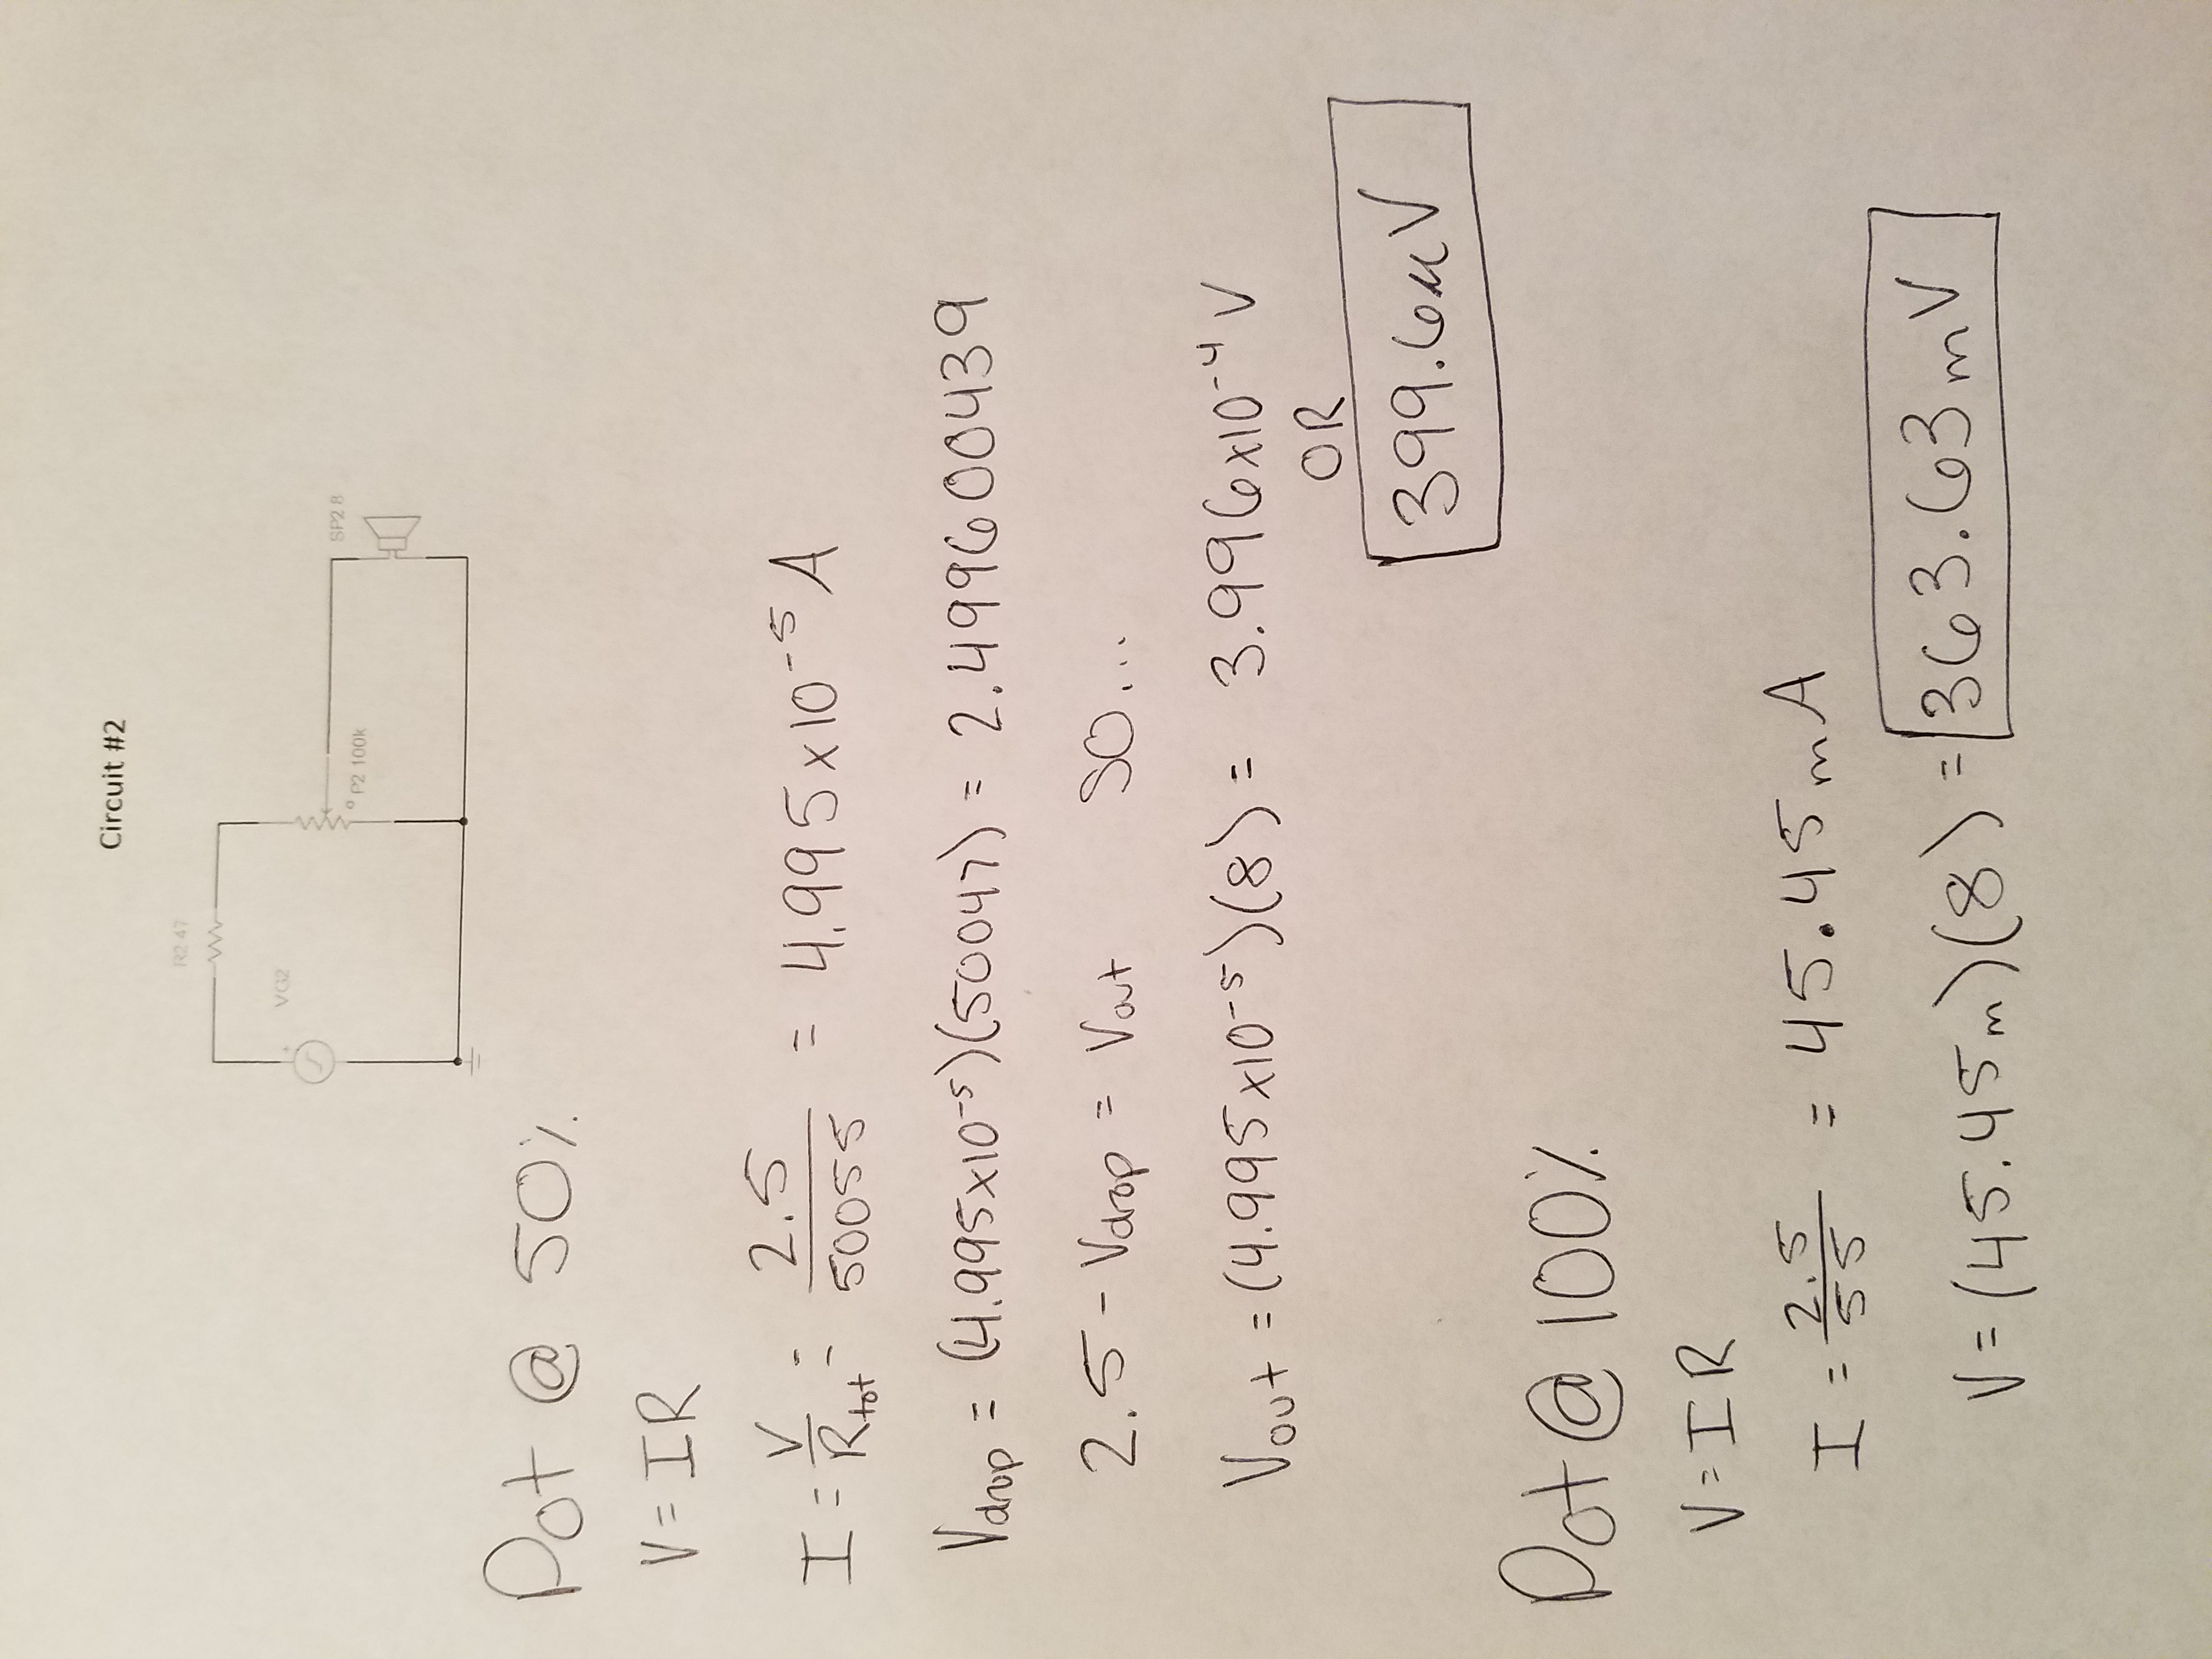 Circuit #2
R2 47
VG2
+
SP2 8
P2 100k
Pot @ 50%
V = IR
I = V/Rtot = 2.5/50055 = 4.995x10^-5 A
Vdrop = (4.995x10^-5)(50047) = 2.499600439
2.5 - Vdrop = Vout so...
Vout = (4.995x10^-5)(8) = 3.996x10^-4 V
OR
399.6µV
Pot @ 100%
V = IR
I = 2.5/55 = 45.45mA
V = (45.45m)(8) = 363.63mV